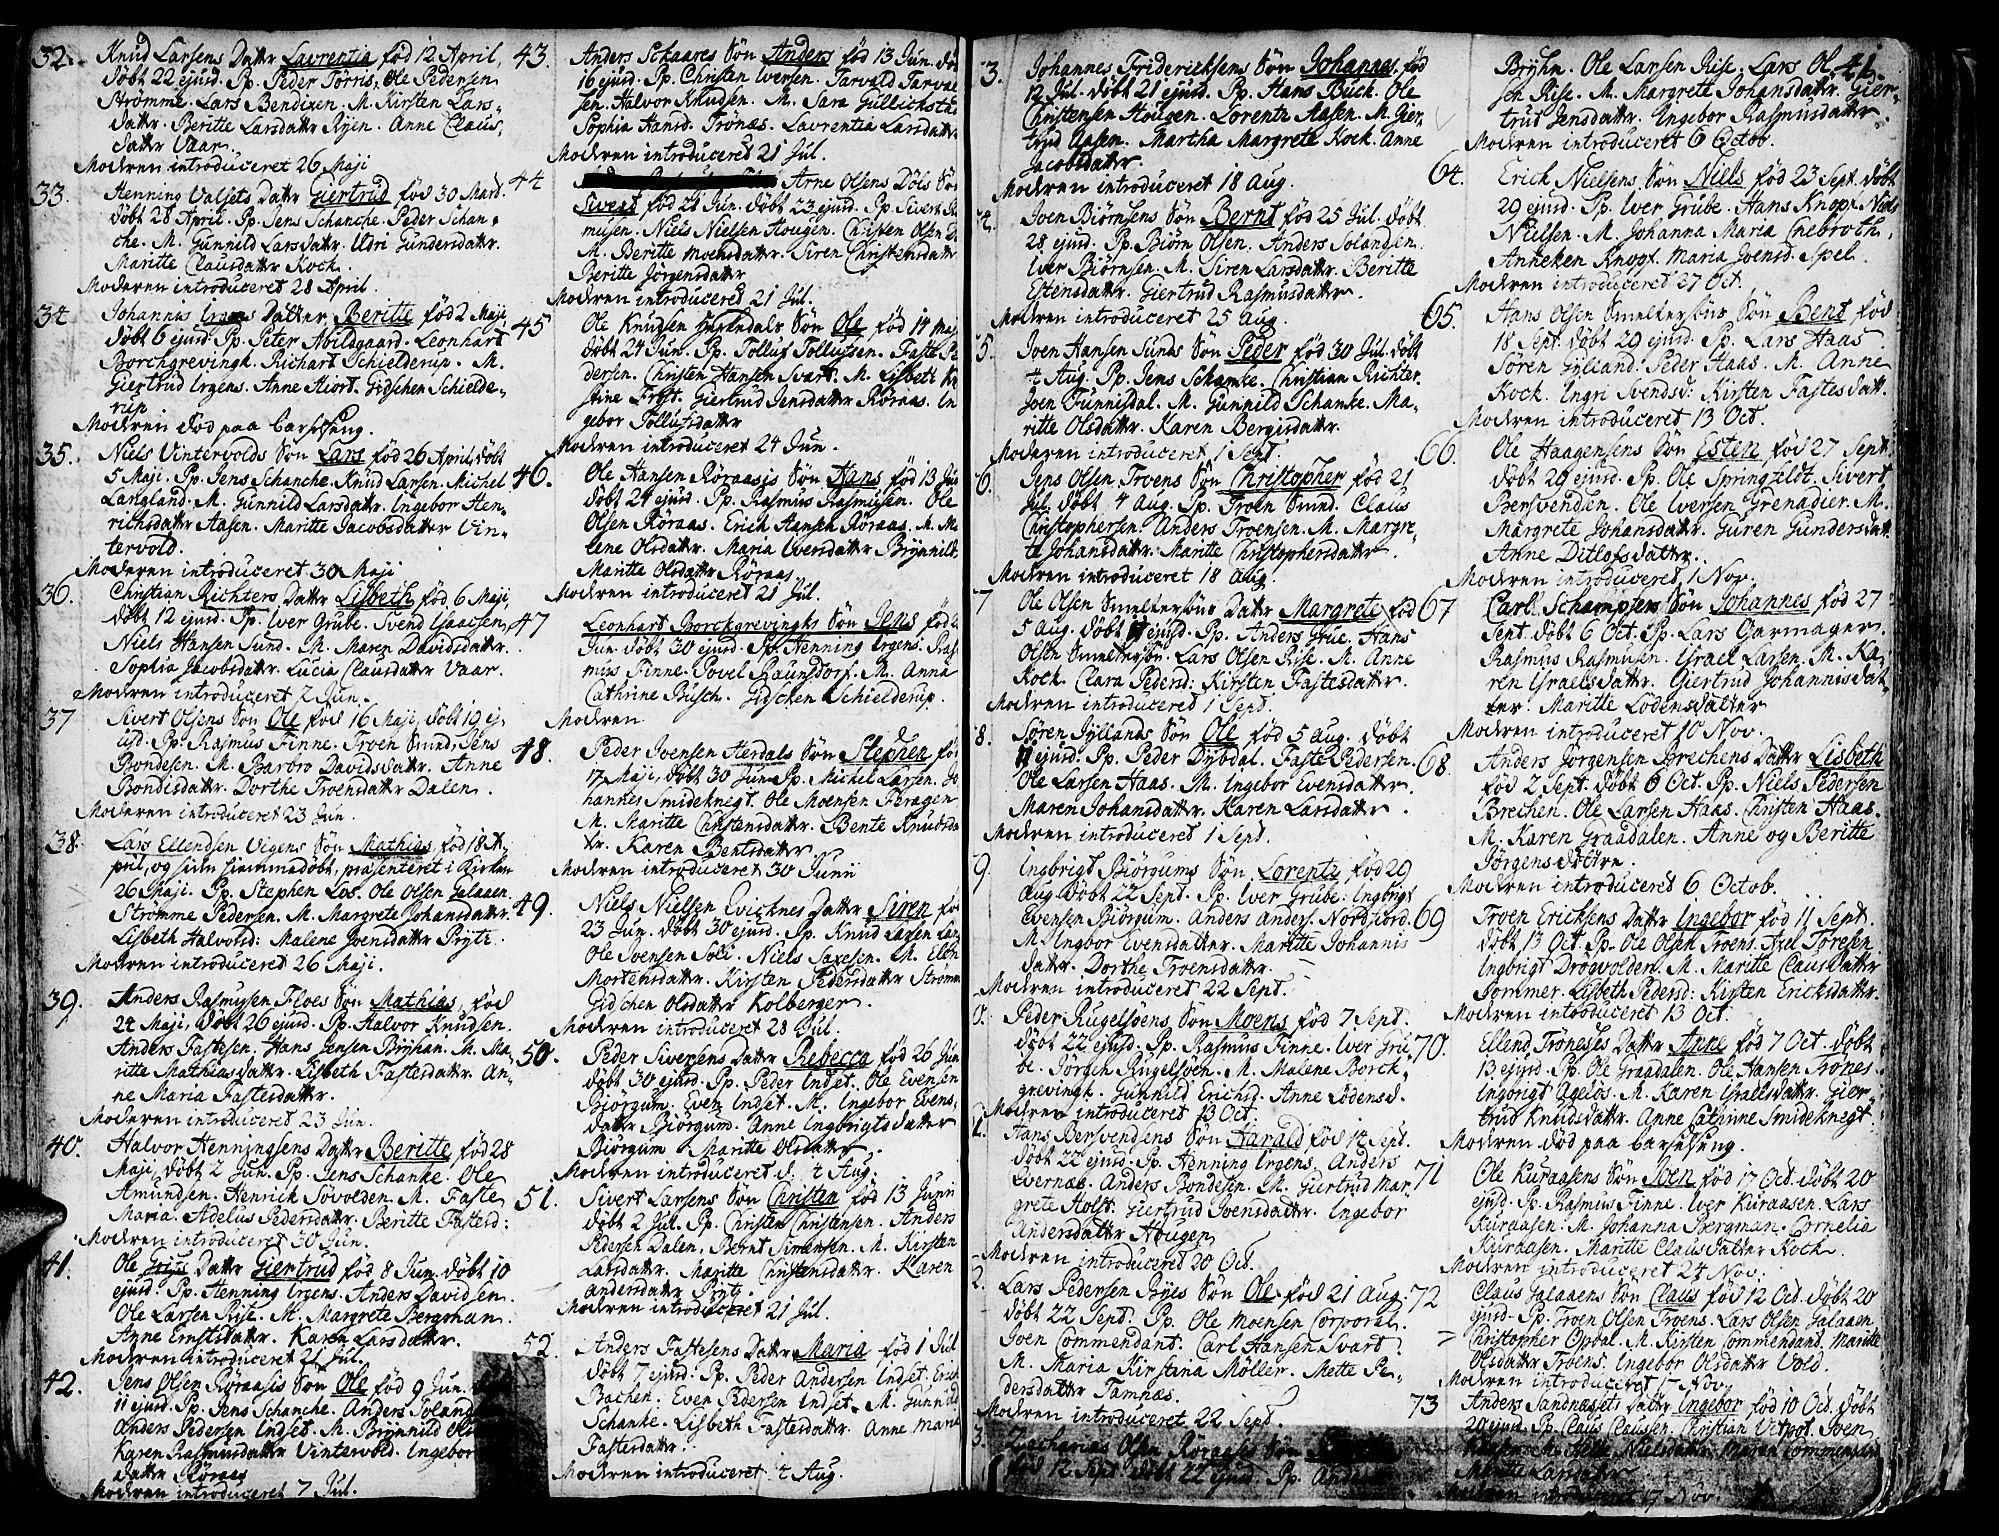 32. Knud Larsens Datter Lavrentia fød 12 April,
døbt 22 ejusd. Pp. Peder Tørris, Ole Pedersen
Strømme. Lars Bendixen. M. Kirsten Lars-
datter. Beritte Larsdatter Ryen. Anne Claus,
datter Vaar.
Moderen introduceret 26 Maji
33. Henning Valsets Datter Giertrud fød 30 Mart.
døbt 28 April. Pp. Jens Schanche. Peder Schan-
che. M. Gunnild Larsdatter. Uldri Gundersdatter.
Maritte Clausdatter Kock.
Moderen introduceret 28 April.
34. Johannis Irgens Datter Beritte fød 2 Maji
døbt 6 ejusd. Pp. Peter Abildgaard. Leonhart
Borchgrevingk. Richart Schielderup. M.
Giertrud Irgens. Anne Hiort. Gidschen Schielde-
rup
Moderen død paa barselseng.
35. Niels Vintervolds Søn Lars fød 26 April, døbt
5 Maji. Pp. Jens Schanche. Knud Larsen. Michel
Langland. M. Gunnild Larsdatter. Ingebor Hen-
richsdatter Aasen. Maritte Jacobsdatter Vin-
tervold.
Moderen introduceret 30 Maji
36. Christian Richters Datter Lisbeth fød 6 Maji,
døbt 12 ejusd. Pp. Iver Grube. Svend Isaacsen,
Niels Hansen Sund. M. Maren Davidsdatter.
Sophia Jacobsdatter. Lucia Clausdatter Vaar.
Moderen introduceret 7 Jun.
37 Sivert Olsens Søn Ole fød 16 Maji, døbt 19 ej-
usd. Pp. Rasmus Finne. Troen Smed, Jens
Bondesen. M. Barbro Davidsdatter. Anne
Bondisdatter. Dorthe Troensdatter Dalen.
Moderen introduceret 23 Jun.
38. Lars Ellendsen Vigens Søn Mathias fød 18 A-
pril, og siden hiemmedøbt, præsenteret i Kirken
26 Maji. Pp. Stephen Los. Ole Olsen Galaaen
Strømme Pedersen. M. Margrete Johansdatter.
Lisbeth Halvorsd: Malene Joensdatter Prytz.
Moderen introduceret 26 Maji.
39. Anders Rasmusen Floes Søn Mathias, fød
24 Maji, døbt 26 ejusd. Pp. Halvor Knudsen.
Anders Fastesen. Hans Jensen Bryhan. M. Ma-
ritte Mathiasdatter. Lisbeth Fastesdatter. An-
ne Maria Fastesdatter.
Moderen introduceret 23 Jun.
40. Halvor Henningsens Datter Beritte fød 28
Maji, døbt 2 Jun. Pp. Jens Schanke. Ole
Amundsen. Henrick Søvolden. M. Faste
Maria. Adelus Pedersdatter. Beritte Fastesd:
Moderen introduceret 30 Jun.
41. Ole Datter Giertrud fød 8 Jun. døbt 10
ejusd. Pp. Henning Irgens. Anders Davidsen.
Ole Larsen Rise. M. Margrete Bergman.
Anne Ernstsdatter. Karen Larsdatter.
Moderen introduceret 21 Jul.
42. Jens Olsen Røraasis Søn Ole fød 9 Jun.
11 ejusd. Pp. Jens Schanche. Anders Soland
Anders Pedersen Indset. M. Brynnild Ols
Karen Rasmusdatter Vintervold. Ingebor
datter Røraas
Moderen introduceret 7 Jul.
43. Anders Sckaares Søn Anders fød 13 Jun. dø
16 ejusd. Pp. Christen Iversen. Tarvald Tarval
sen. Halvor Knudsen. M. Sara Gullichsda
Sophia Hansd. Trønæs. Lavrentia Larsdatter
Moderen introduceret 21 Jul.
44 Arne Olsens Døls Sø
Sivert fød 21 Jun. døbt 23 ejusd. Pp. Sivert Ra
musen. Niels Nielsen Hougen. Christen Olsen
M. Beritte Moensdatter. Siren Christensdatter
Beritte Jørgensdatter
Moderen introduceret 21 Jul.
45 Ole Knudsen Søn Ole fød 14 Maj
døbt 24 Jun. Pp. Tolluf Tollufsen. Faste Pe
dersen. Christen Hansen Svart. M. Lisbeth
stine Frost. Giertrud Jensdatter Røraas. In
gebor Tollufsdatter
Moderen introduceret 24 Jun.
46. Ole Hansen Røraasis Søn Hans fød 13 Jun
døbt 24 ejusd. Pp. Rasmus Rasmusen. Ole
Olsen Røraas. Erich Hansen Røraas. M. Ma
lene Olsdatter. Maria Iversdatter Brynnild
Maritte Olsdatter Røraas.
Moderen introduceret 21 Jul.
47 Leonhart Borckgrevingks Søn Jens fød 2
Jun. døbt 30 ejusd. Pp. Henning Irgens. Ras
mus Finne. Povel Raunsdorf. M. Anna
Cathrine Busch. Gidscken Schielderup.
Moderen
48. Peder Joensen Herdals Søn Stephen fød
17 Maji, døbt 30 Jun. Pp. Michel Larsen. Jo
hannes Smideknegt. Ole Moensen Sbragen
M. Maritte Christensdatter. Bente Knudsda
tr. Karen Bentsdatter
Moderen introduceret 30 Junii
49. Niels Nielsen Qvicknes Datter Siren fø
23 Jun. døbt 30 ejusd. Pp. Knud Larsen Lan
Ole Joensen Soli. Niels Saxesen. M. Elen
Mortensdatter. Kirsten Pedersdatter Strømm
Gidschen Olsdatter Kolberger.
Moderen introduceret 28 Jul.
50. Peder Siversens Datter Rebecca fød 26 Jun
døbt 30 ejusd. Pp. Peder Indset. Ole Evensen
Bjørgum. Even Indset. M. Ingebor Evens-
datter Bjørgum. Anne Ingbrigtsdatter
Bjørgum. Maritte Olsdatter.
Moderen introduceret d. 4 Aug.
51. Sivert Larsens Søn Christen fød 13 Junii
døbt 2 Jul. Pp. Christen Christensen. Anders
Pedersen Dalen, Bernt Simensen. M. Kirsten
Larsdatter. Maritte Christensdatter. Karen
Andersdatter Prytz.
Moderen introduceret 21 Jul.
52. Anders Fastesens Datter Maria fød 1 Jul
døbt 7 ejusd. Pp. Peder Andersen Indset. Erich
Bachen. Even Pedersen Indset. M. Gunnild
Schanke. Lisbeth Fastesdatter. Anne Maria
Fastesdatter.
Moderen introduceret 4 Aug.
3. Johannes Fridericksens Søn Johannes. fød
12 Jul. døbt 21 ejusd. Pp. Hans Buck. Ole
Christensen Hougen. Lorentz Aasen. M. Gier-
trud Aasen. Martha Margrete Kock. Anne
Jacobsdatter
Moderen introduceret 18 Aug.
4. Joen Biørnsens Søn Bernt fød 25 Jul. døbt
28 ejusd. Pp. Biørn Olsen. Anders Solandsen.
Iver Biørnsen. M. Siren Larsdatter. Beritte
Estensdatter. Giertrud Rasmusdatter.
Moderen introduceret 25 Aug.
5. Joen Hansen Sunds Søn Peder fød 30 Jul. døbt
4 Aug. Pp. Jens Schanke. Christian Richter.
Joen Funnisdal. M. Gunnild Schanke. Ma-
ritte Olsdatter. Karen Bergisdatter.
Moderen introduceret 1 Sept.
6. Jens Olsen Troens Søn Christopher fød 21
Jul. døbt 4 Aug. Pp. Troen Smed. Claus
Christophersen. Anders Troensen. M. Margre-
te Johansdatter. Maritte Christophersdatter.
Moderen introduceret 18 Aug.
7 Ole Olsen Smelterbus Datter Margrete fød
5 Aug. døbt 11 ejusd. Pp. Anders Grue. Hans
Olsen Smelterbu. Lars Olsen Rise. M. Anne
Kock. Clara Pedersd: Kirsten Fastesdatter.
Moderen introduceret 1 Sept.
8. Søren Jyllands Søn Ole fød 5 Aug. døbt
11 ejusd. Pp. Peder Dybdal. Faste Pedersen.
Ole Larsen Haas. M. Ingebor Evensdatter.
Maren Johansdatter. Karen Larsdatter.
Moderen introduceret 1 Sept.
9. Ingbrigt Biørgums Søn Lorentz fød 29
Aug. døbt 22 Sept. Pp. Iver Grube. Ingbrigt
Evensen Biørgum. Anders Anders. Nordfiord.
M. Ingbor Evensdatter. Maritte Johannis
datter. Dorthe Troensdatter.
Moderen introduceret 22 Sept.
0. Peder Rugelsøens Søn Moens fød 7 Sept.
døbt 22 ejusd. Pp. Rasmus Finne. Iver Gru-
be. Jørgen Rugelsøen. M. Malene Borck-
grevingk. Gunnild Erichsd. Anne Lodensd.
Moderen introduceret 13 Oct.
1. Hans Bersvendsens Søn Harald fød 14 Sept.
døbt 22 ejusd. Pp. Henning Irgens. Anders
Evernæs. Anders Bondesen. M. Giertrud Mar-
grete Holst. Giertrud Svensdatter. Ingebor
Andersdatter Hougen
Moderen introduceret 20 Oct.
2. Lars Pedersen Byes Søn Ole fød 21 Aug.
døbt 22 Sept. Pp. Ole Moensen Corporal.
Joen Commendant. Carl Hansen Svart.
M. Maria Kirstina Møller. Mette Pe-
dersdatter Tamnæs.
Moderen introduceret 22 Sept.
3. Zacharias Olsen Røraases Søn
fød 12 Sept. døbt 22 ejusd. Pp. Anders
41.
Bryhn. Ole Larsen Rise. Lars Ol
sen Rise. M. Margrete Johansdatter. Gier-
trud Jensdatter. Ingebor Rasmusdatter.
Moderen introduceret 6 Octob.
64. Erick Nielsens Søn Niels fød 23 Sept. døbt
29 ejusd. Pp. Iver Grube. Hans Knopf. Niels
Nielsen. M. Johanna Maria Chebroth.
Anneken Knopf. Maria Joensd. Spel.
Moderen introduceret 27 Oct.
65. Hans Olsen Smelterbus Søn Bent fød
18 Sept. døbt 29 ejusd. Pp. Lars Haas.
Søren Gylland. Peder Haas. M. Anne
Kock. Ingri Svendsd: Kirsten Fastesdatt.
Moderen introduceret 13 Oct.
66. Ole Haagensens Søn Esten fød 27 Sept
døbt 29 ejusd. Pp. Ole Springfeldt. Sivert
Bersvendsen. Ole Iversen Grenadier. M.
Margrete Johansdatter. Guren Gundersdatt.
Anne Ditlofsdatter.
Moderen introduceret 1 Nov.
67 Carl Schampsers Søn Johannes fød 27
Sept. døbt 6 Oct. Pp. Lars Gjarmager.
Rasmus Rasmusen. Israel Larsen. M. Ka-
ren Israelsdatter. Giertrud Johannisdat-
ter. Maritte Lodensdatter
Moderen introduceret 10 Nov.
68. Anders Jørgensen Brechens Datter Lisbeth
fød 2 Sept. døbt 6 Oct. Pp. Niels Pedersen
Brechen. Ole Larsen Haas. Christen Haas.
M. Karen Graadalen. Anne og Beritte
Jørgensdøtre.
Moderen introduceret 6 Octob.
69 Troen Ericksens Datter Ingebor fød 11 Sept.
døbt 13 Oct. Pp. Ole Olsen Troens. Axel Toresen
Ingbrigt Drøgvolden. M. Maritte Clausdatter
Sommer. Lisbeth Pedersd: Kirsten Ericksdatter.
Moderen introduceret 13 Oct.
70. Ellend Trøneses Datter Anne fød 7 Oct. døbt
13 ejusd. Pp. Ole Graadalen. Ole Hansen Trønes.
Ingbrigt Ageløs. M. Karen Israelsdatter. Gier-
trud Knudsdatter. Anne Catrine Smideknegt.
Moderen død paa barselseng.
71 Ole Kuraasens Søn Joen fød 17 Oct. døbt 20
ejusd. Pp. Rasmus Finne. Iver Kuraasen. Lars
Kuraasen. M. Johanna Bergman. Cornelia
Kuraasen. Maritte Clausdatter Kock.
Moderen introduceret 24 Nov.
72 Claus Galaaens Søn Claus fød 12 Oct. døbt 20
ejusd. Pp. Troen Olsen Troens. Lars Olsen Galaaen
Christopher Opdal. M. Kirsten Commendand. Maritte
Olsdatter Troens. Ingebor Olsdatter Vold.
Moderen introduceret 17 Nov.
73 Anders Sandnæsets Datter Ingebor fød 10 Oct. døbt
20 ejusd. Pp. Claus Clausen. Christian Joen
M. Nielsdatter. Maren Commendand
Maritte Larsdatter
Moderen introduceret 17 Nov.